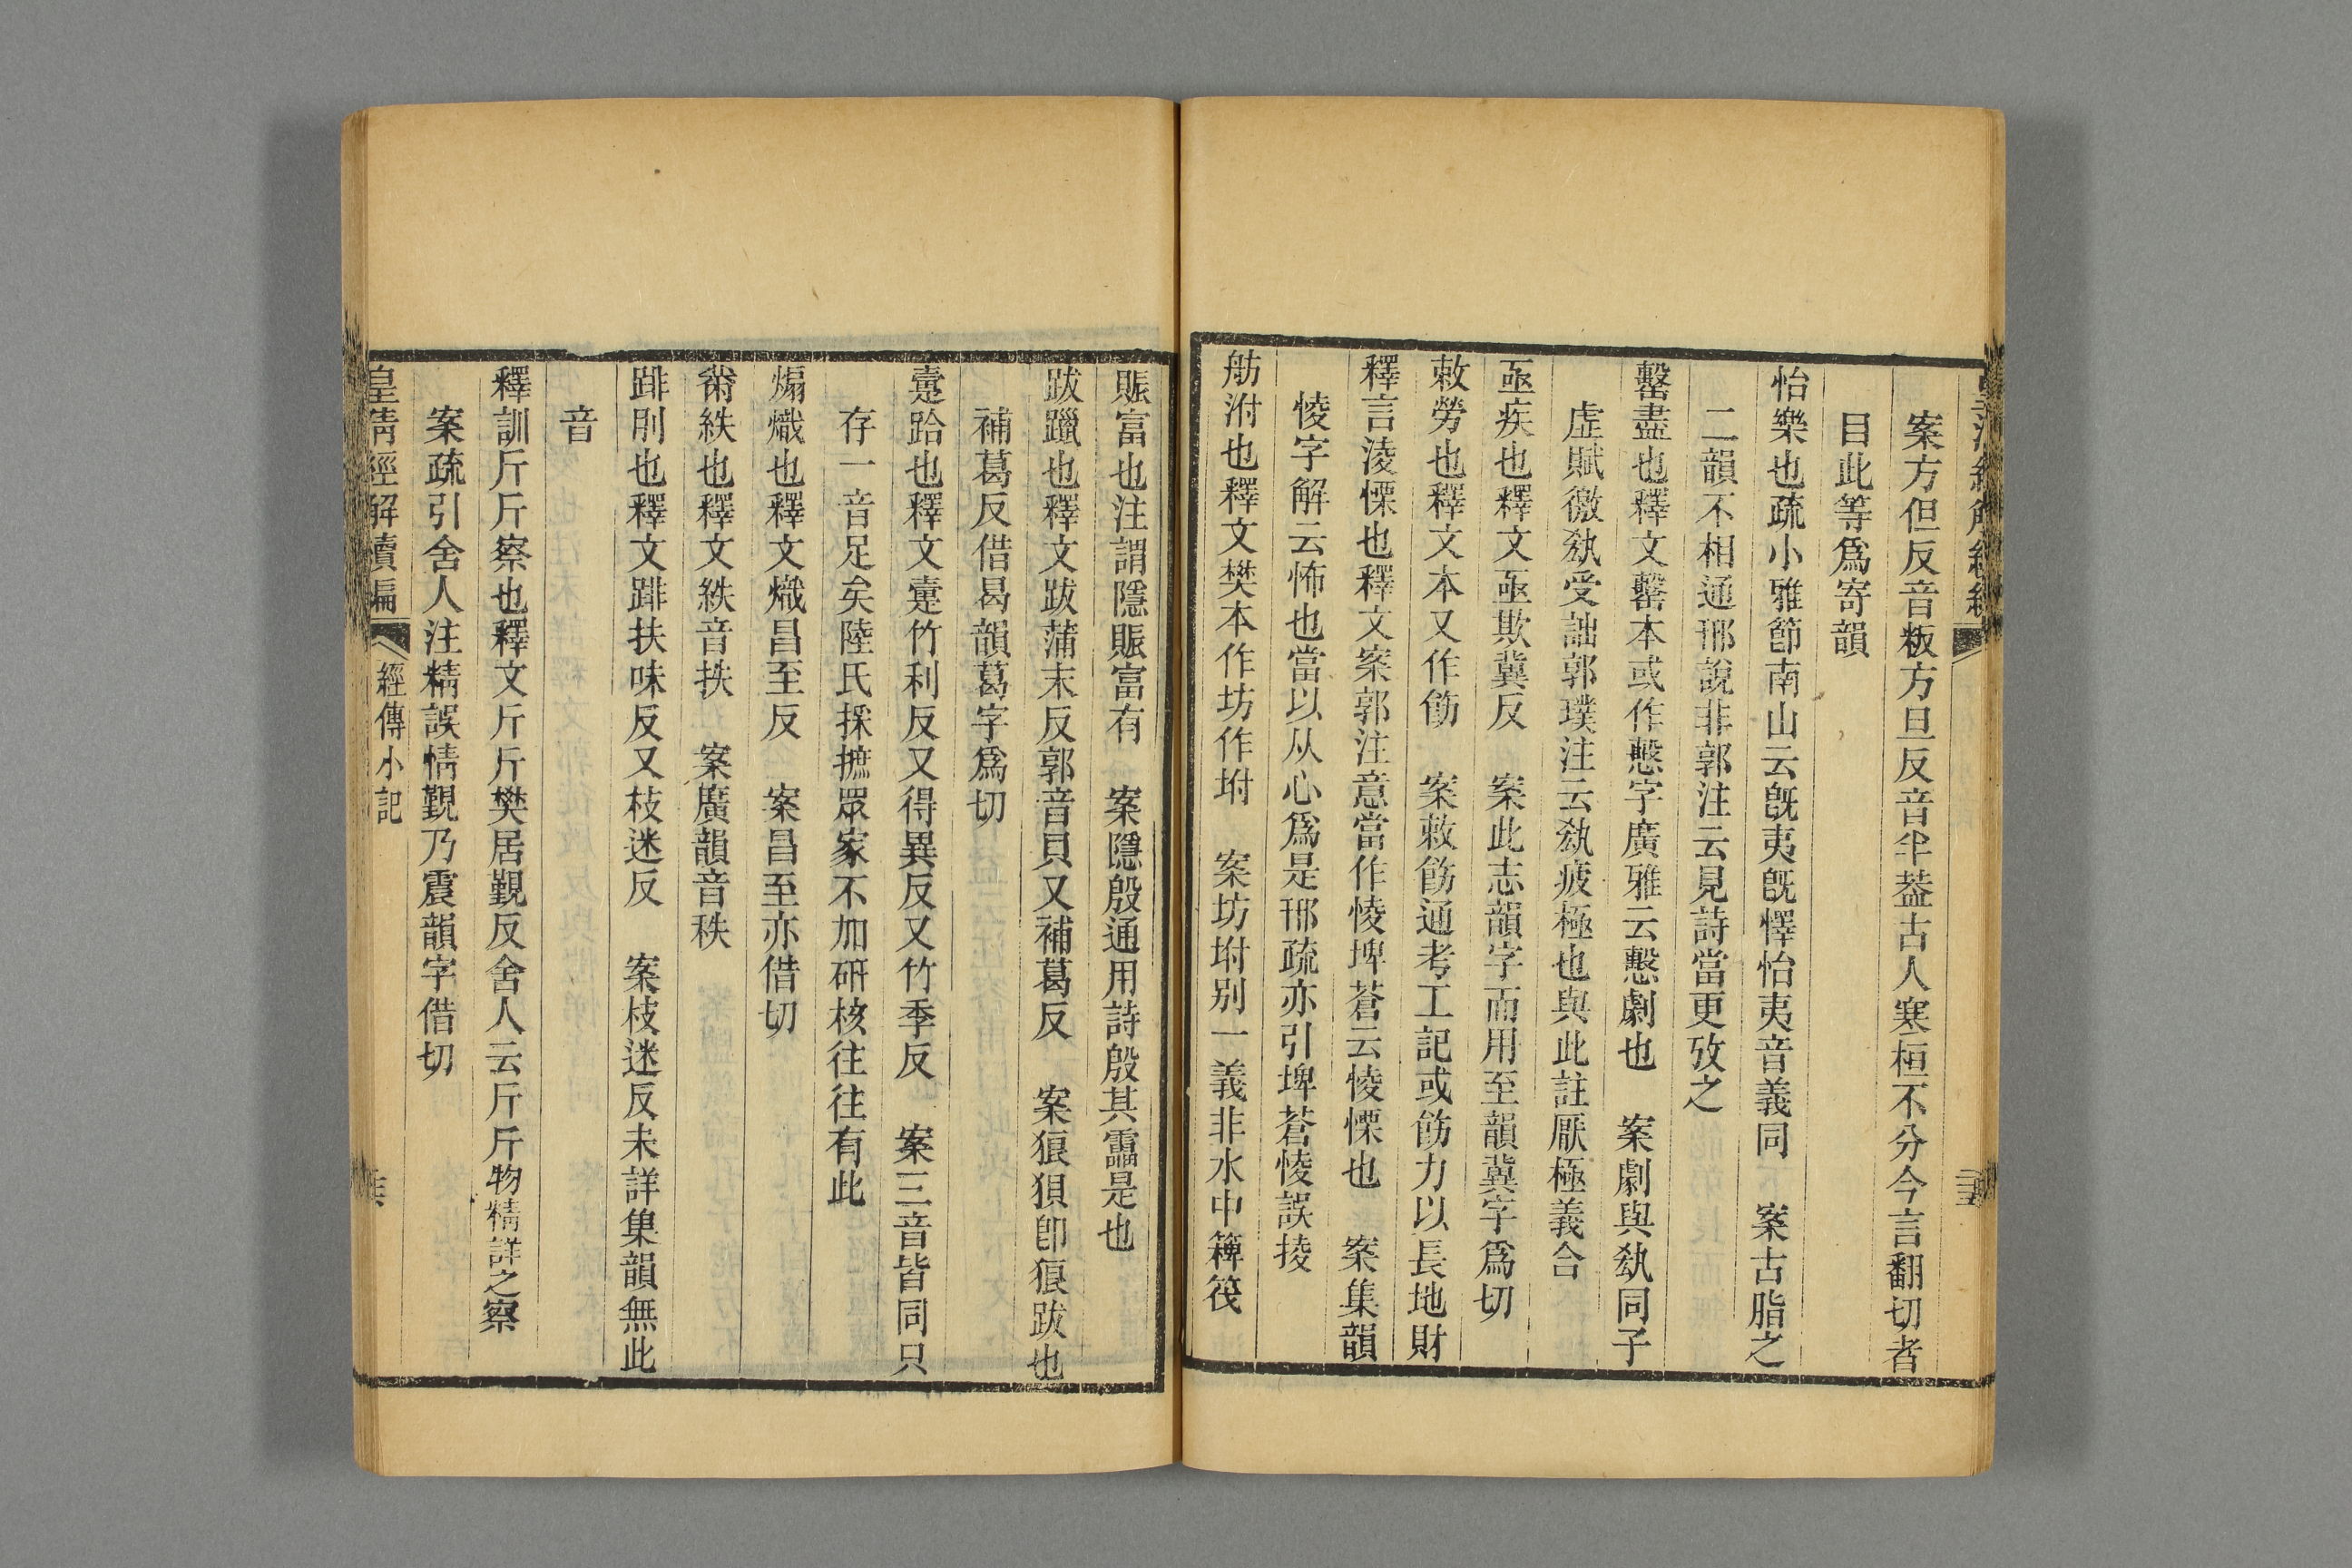 案方但反音粄方旦反音半葢古人寒桓不分今言翻切者
目此等爲寄韻
怡樂也疏小雅節南山云旣夷旣懌怡夷音義同　案古脂之
二韻不相通邢說非郭注云見詩當更攷之
罄盡也釋文罄本或作慇字廣雅云慇劇也　案劇與㰟同子
虛賦徼㰟受詘郭璞注云㰟疲極也與此註厭極義合
亟疾也釋文亟欺冀反　案此志韻字而用至韻冀字爲切
敕勞也釋文本又作飭　案敕飭通考工記或飭力以長地財
釋言淩慄也釋文案郭注意當作㥄埤蒼云㥄慄也　案集韻
㥄字解云怖也當以从心爲是邢疏亦引埤蒼㥄誤掕
舫泭也釋文樊本作坊作坿　案坊坿别一義非水中簰筏
賑富也注謂隱賑富有　案隱殷通用詩殷其靁是也
跋躐也釋文跋蒲末反郭音貝又補葛反　案狼狽卽㾗跋也
補葛反借曷韻葛字爲切
疐跲也釋文疐竹利反又得異反又竹季反　案三音皆同只
存一音足矣陸氏採摭眾家不加硏核往往有此
煽熾也釋文熾昌至反　案昌至亦借切
黹紩也釋文紩音抶　案廣韻音秩
跸刖也釋文跸扶味反又枝迷反　案枝迷反未詳集韻無此
音
釋訓斤斤察也釋文斤斤樊居覲反舍人云斤斤物精詳之察
案疏引舍人注精誤情覲乃震韻字借切
皇淸經解續編　經傳小記